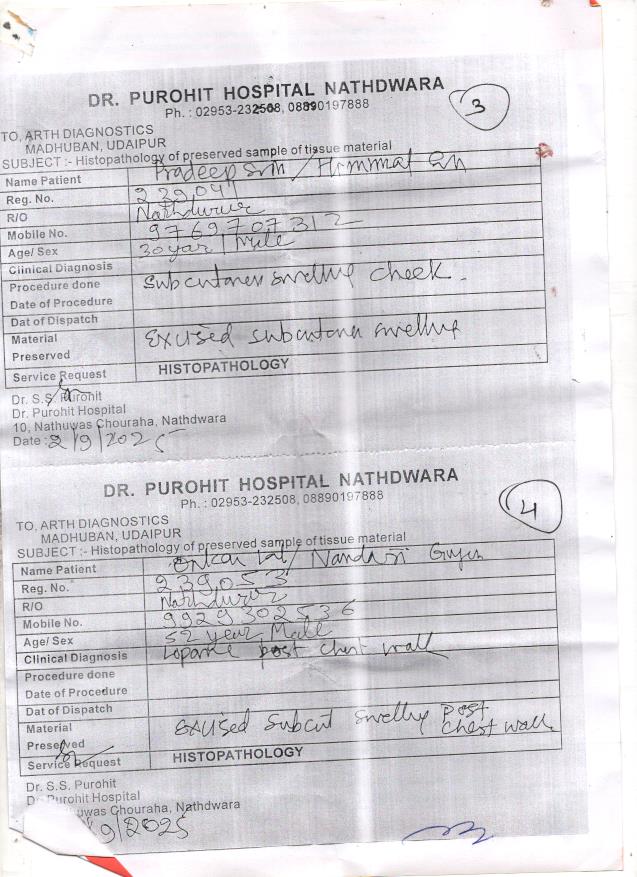 DR. PUROHIT HOSPITAL NATHDWARA
Ph. : 02953-232508, 08890197888
3
TO, ARTH DIAGNOSTICS
MADHUBAN, UDAIPUR
SUBJECT :- Histopathology of preserved sample of tissue material
Name Patient Pradeep / Himmat
Reg. No.
R/O Nathdwara
Mobile No. 9769707312
Age/ Sex 30 year / Male
Clinical Diagnosis
Procedure done Subcutaneous swelling cheek
Date of Procedure
Dat of Dispatch
Material Preserved Excised subcutaneous swelling
Service Request HISTOPATHOLOGY
Dr. S.S. Purohit
Dr. Purohit Hospital
10, Nathuwas Chouraha, Nathdwara
Date : 2/9/2025
DR. PUROHIT HOSPITAL NATHDWARA
Ph. : 02953-232508, 08890197888
4
TO, ARTH DIAGNOSTICS
MADHUBAN, UDAIPUR
SUBJECT :- Histopathology of preserved sample of tissue material
Name Patient Onkar Lal /
Reg. No. 2390553
R/O Nathdwara
Mobile No. 9929302536
Age/ Sex 52 year Male
Clinical Diagnosis post chest wall
Procedure done
Date of Procedure
Dat of Dispatch
Material Preserved Excised subcut swelling post chest wall
Service Request HISTOPATHOLOGY
Dr. S.S. Purohit
Purohit Hospital
uwas Chouraha, Nathdwara
/9/2025